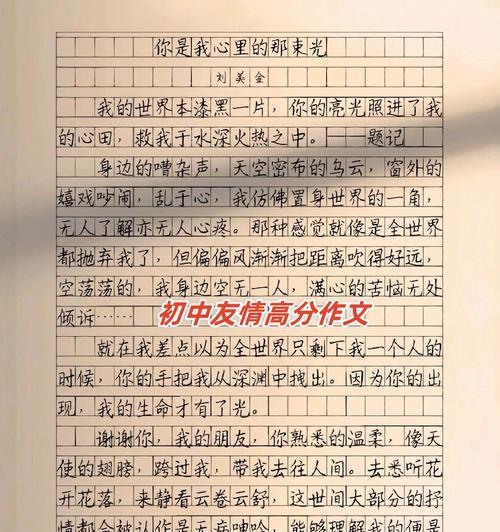 你是我心里的那束光
刘美金
我的世界本漆黑一片，你的亮光照进了我
的心田，救我于水深火热之中。——题记
身边的嘈杂声，天空密布的乌云，窗外的
嬉戏吵闹，乱于心，我仿佛置身世界的一角，
无人了解亦无人心疼。那种感觉就像是全世界
都抛弃我了，但偏偏风渐渐把距离吹得好远，
空荡荡的，我身边空无一人，满心的苦恼无处
倾诉……
初中友情高分作文
就在我差点以为全世界只剩下我一个人的
时候，你的手把我从深渊中拽出。因为你的出
现，我的生命才有了光。
谢谢你，我的朋友，你熟悉的温柔，像天
使的翅膀，跨过我，带我去往人间。去悉听花
开花落，来静看云卷云舒，这世间大部分的抒
情都会被认作是无病呻吟，能够理解我的便是